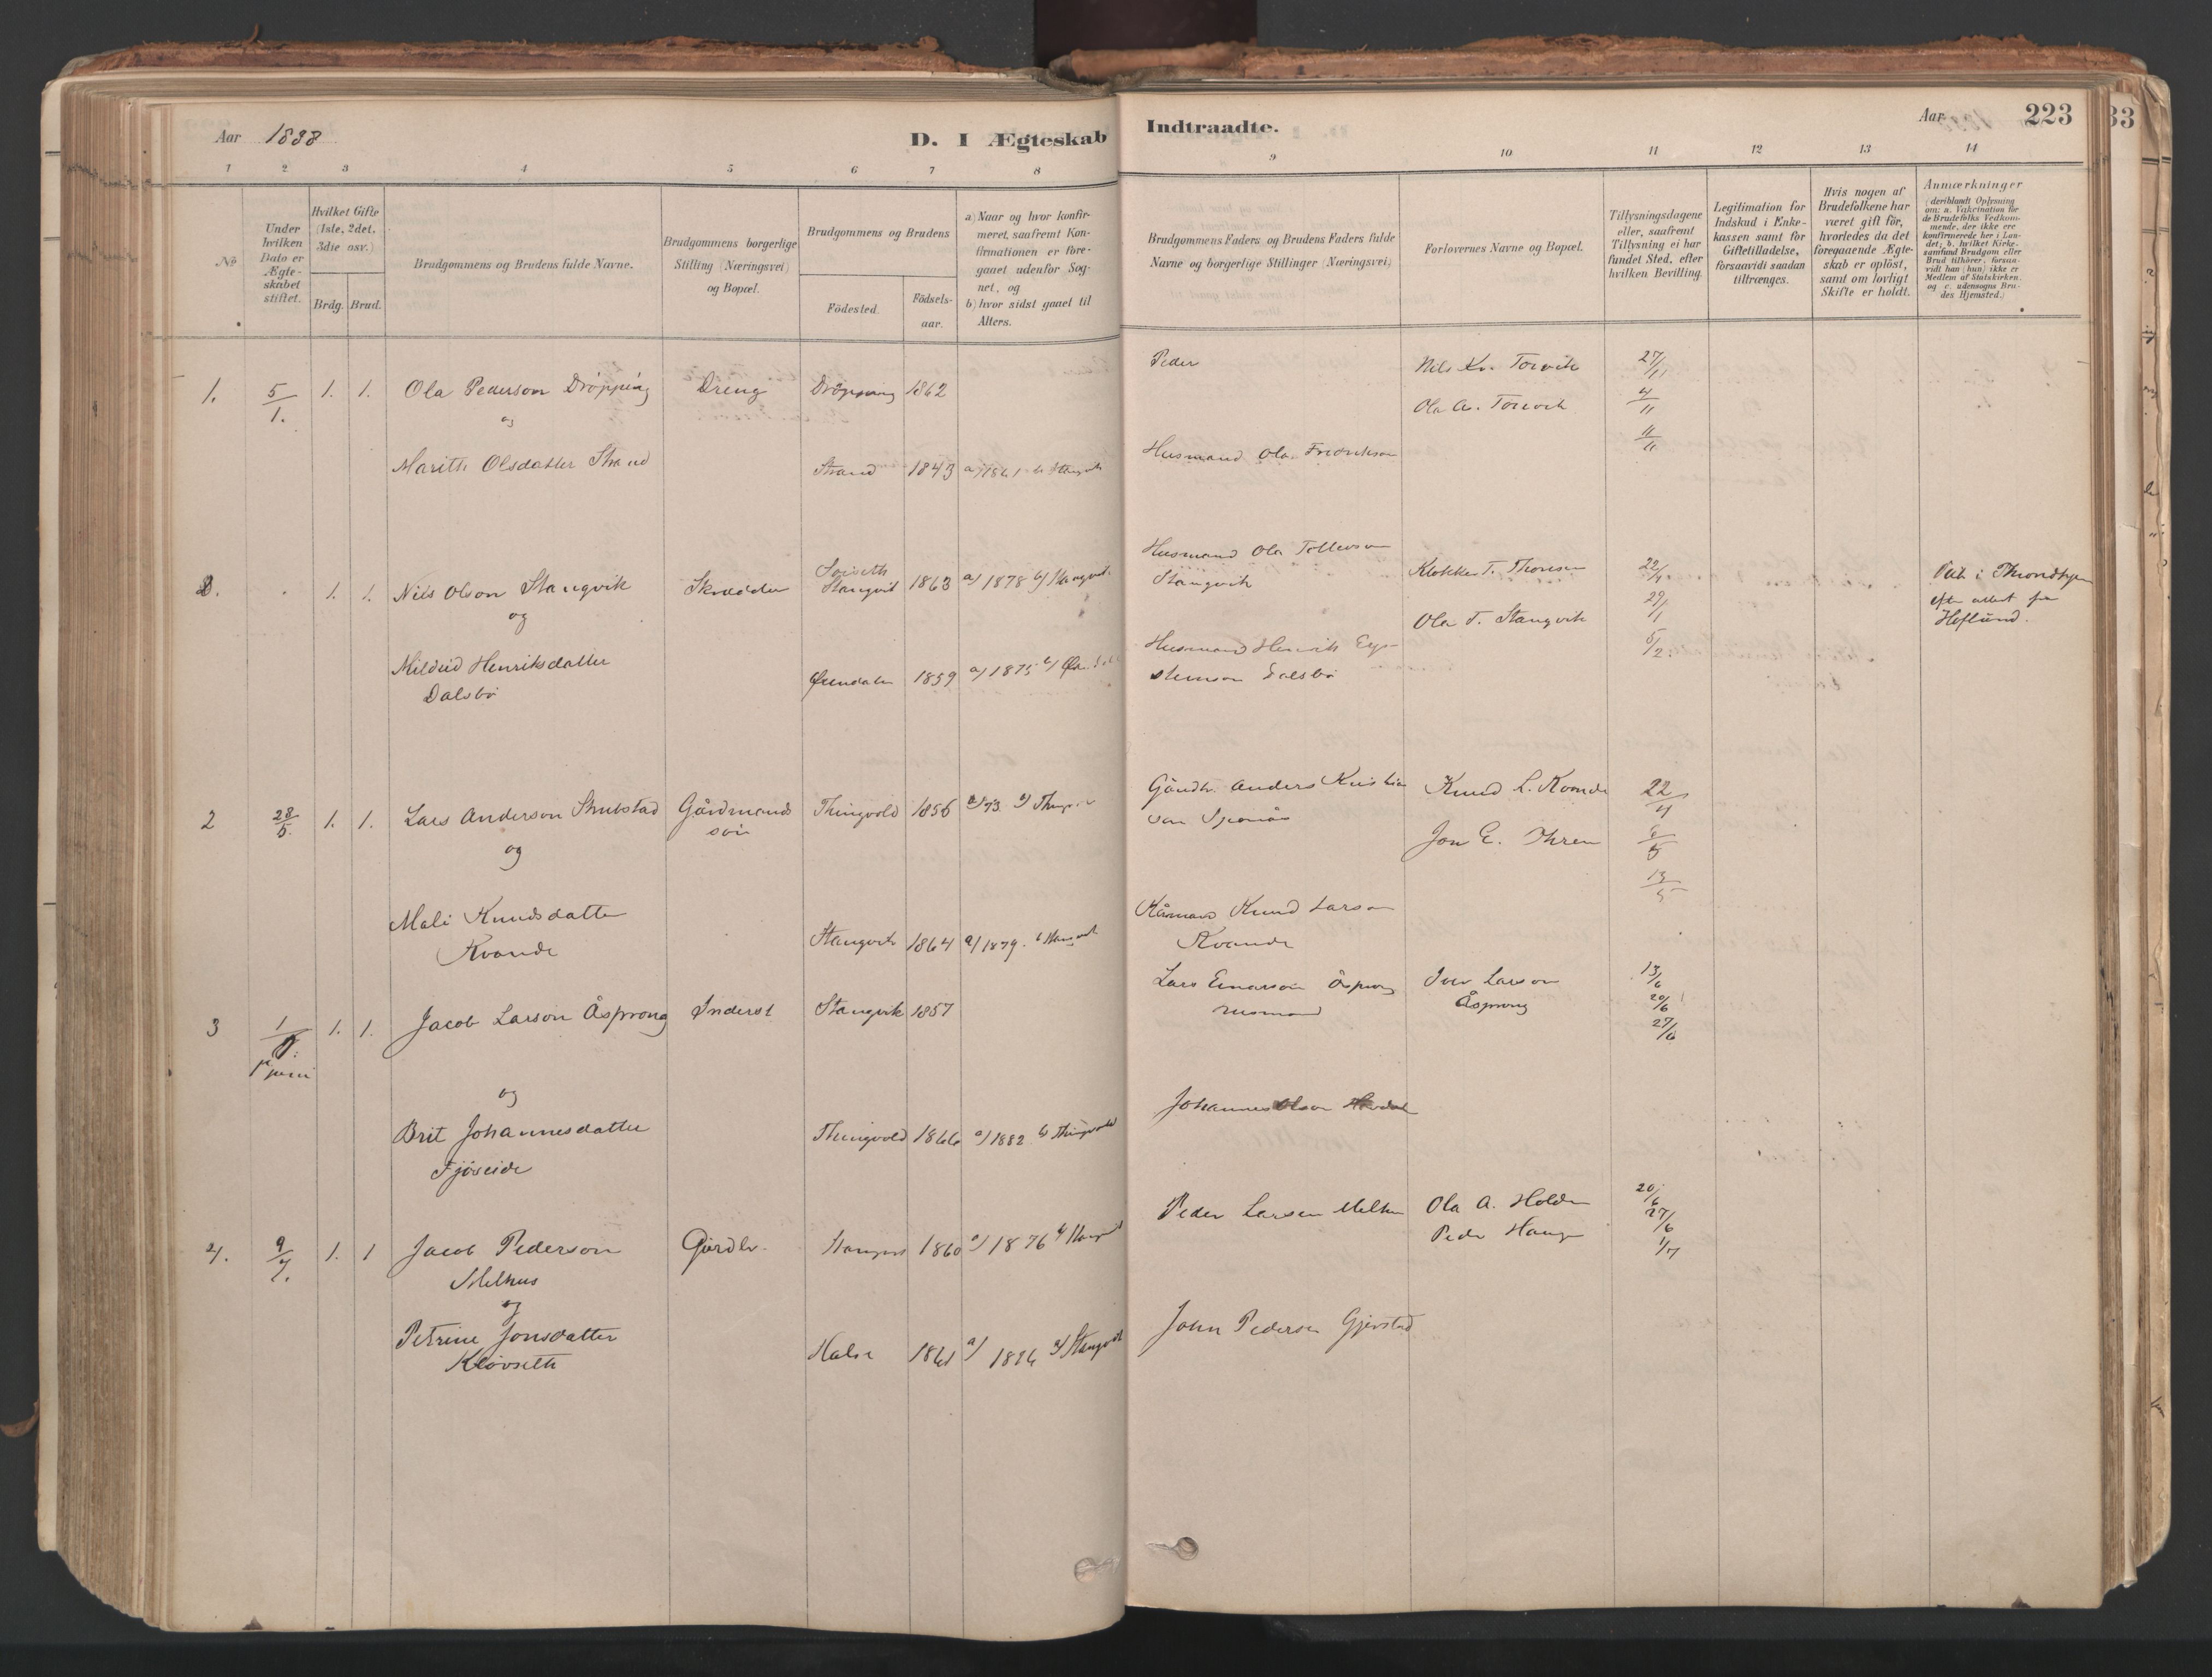 Aar 1888
D. I Ægteskab
Indtraadte.
Aar
223
33
1 2 3 4 5 6 7 8 9 10 11 12 13 14
No
Under hvilken Dato er Ægteskabet stiftet.
Hvilket Gifte (1ste, 2det, 3die osv.)
Brdg. Brud.
Brudgommens og Brudens fulde Navne.
Brudgommens borgerlige Stilling (Næringsvei) og Bopæl.
Brudgommens og Brudens
Födested.
Födsels-aar.
a) Naar og hvor konfir-
meret, saafremt Kon-
firmationen er fore-
gaaet udenfor Sog-
net, og
b) hvor sidst gaaet til
Alters.
Brudgommens Faders og Brudens Faders fulde
Navne og borgerlige Stillinger (Næringsvei)
Forlovernes Navne og Bopæl.
Tillysningsdagene
eller, saafremt
Tillysning ei har
fundet Sted, efter
hvilken Bevilling.
Legitimation for
Indskud i Enke-
kassen samt for
Giftetilladelse,
forsaavidt saadan
tiltrænges.
Hvis nogen af
Brudefolkene har
været gift för,
hvorledes da det
foregaaende Ægte-
skab er oplöst,
samt om lovligt
Skifte er holdt.
Anmærkninger
(deriblandt Oplysning
om: a. Vakcination for
de Brudefolks Vedkom-
mende, der ikke ere
konfirmerede her i Lan-
det; b. hvilket Kirke-
samfund Brudgom eller
Brud tilhörer, forsaa-
vidt han (hun) ikke er
Medlem af Statskirken,
og c. udensogns Bru-
des Hjemsted.)
1. 5/1. 1. 1. Ola Pederson Dröpping Dreng Dröpping 1862
Peder
Nils Kr. Torvik 27/11
og
Ola A. Torvik 4/11
11/11
Marith Olsdatter Strand Strand 1843 a) 1861 b) Stangvik
Husmand Ola Fredrikson
2. 1. 1. Nils Olson Stangvik Skrædder Stangvik 1863 a) 1878 b) Stangvik
Husmand Ola Tollevson
Stangvik
Klokker T. Thoresen 22/1
og
Ola T. Stangvik 29/1
5/2.
Viet i Throndhjem
efter attest fra
Höflund.
Mildrid Henriksdatter
Dalsbö
Øxendalen 1859 a) 1875 b)
Husmand Henrik Ey-
stenson Dalsbö
2 28/5. 1. 1. Lars Anderson Skrubstad Gårdmands
sön
Thingvold 1856 a) 73. b) Thingv.
Gårdbr. Anders Kristian
son
Knud L. Kvande 22/4
og
Jon E. Thren 6/5
13/5
Mali Knudsdatter
Kvande
Stangvik 1864 a) 1879. b) Stangvik
Kårmand Knud Larson
Kvande
3 1/7. 1. 1. Jacob Larson Åsprong Inderst Stangvik 1857
juni
Lars Einarson Åsprong
Husmand
Iver Larson
Åsprong
13/6
20/6
27/6
og
Brit Johannesdatter
Fjöseide
Thingvold 1866 a) 1882 b) Thingvold
Johannes Olson
4. 9/7. 1. 1 Jacob Pederson
Melhus
Gårdbr. Stangvik 1860 a) 1876 b) Stangvik
Peder Larsen Melhus
Ola A. Holden
Peder Hauge
20/6
27/6
1/7
og
Petrine Jonsdatter
Klövseth
Halse 1861 a) b) Stangvik
John Pedersen Gjerstad